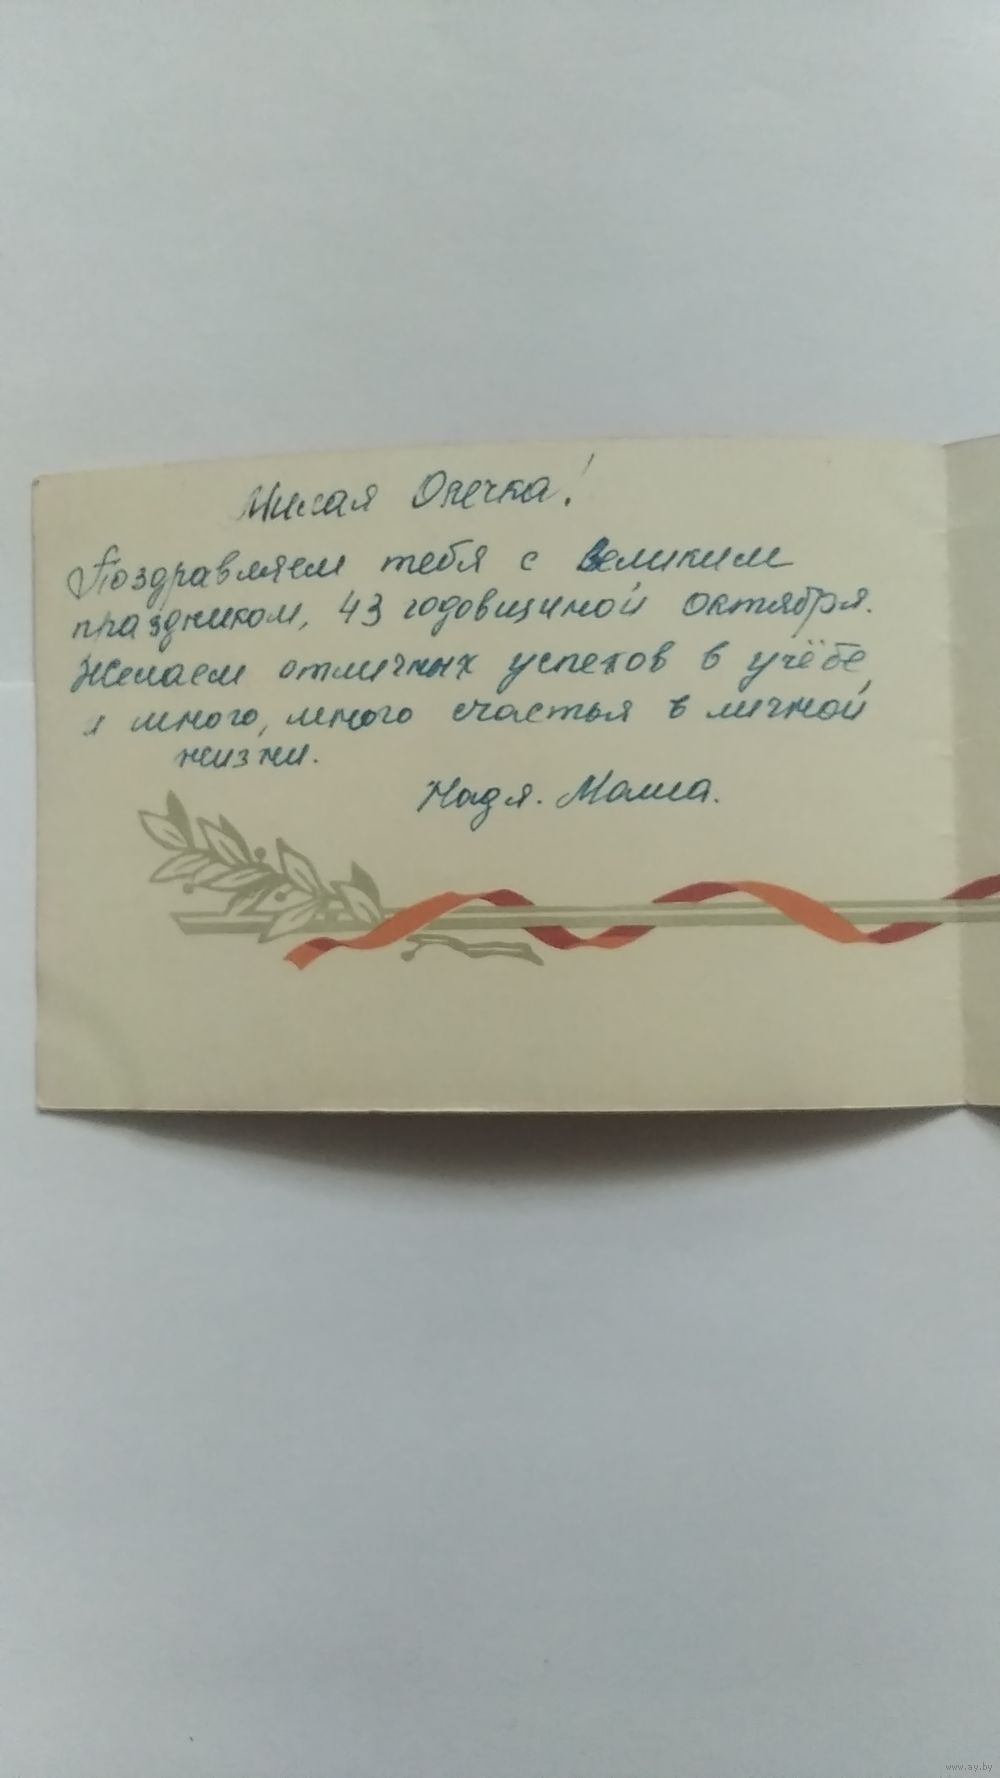 Милая Олечка!
Поздравляем тебя с Великим
праздником, 43 годовщиной октября.
Желаем отличных успехов в учёбе
и много, много счастья в личной
жизни.
Надя. Маша.
www.ay.by